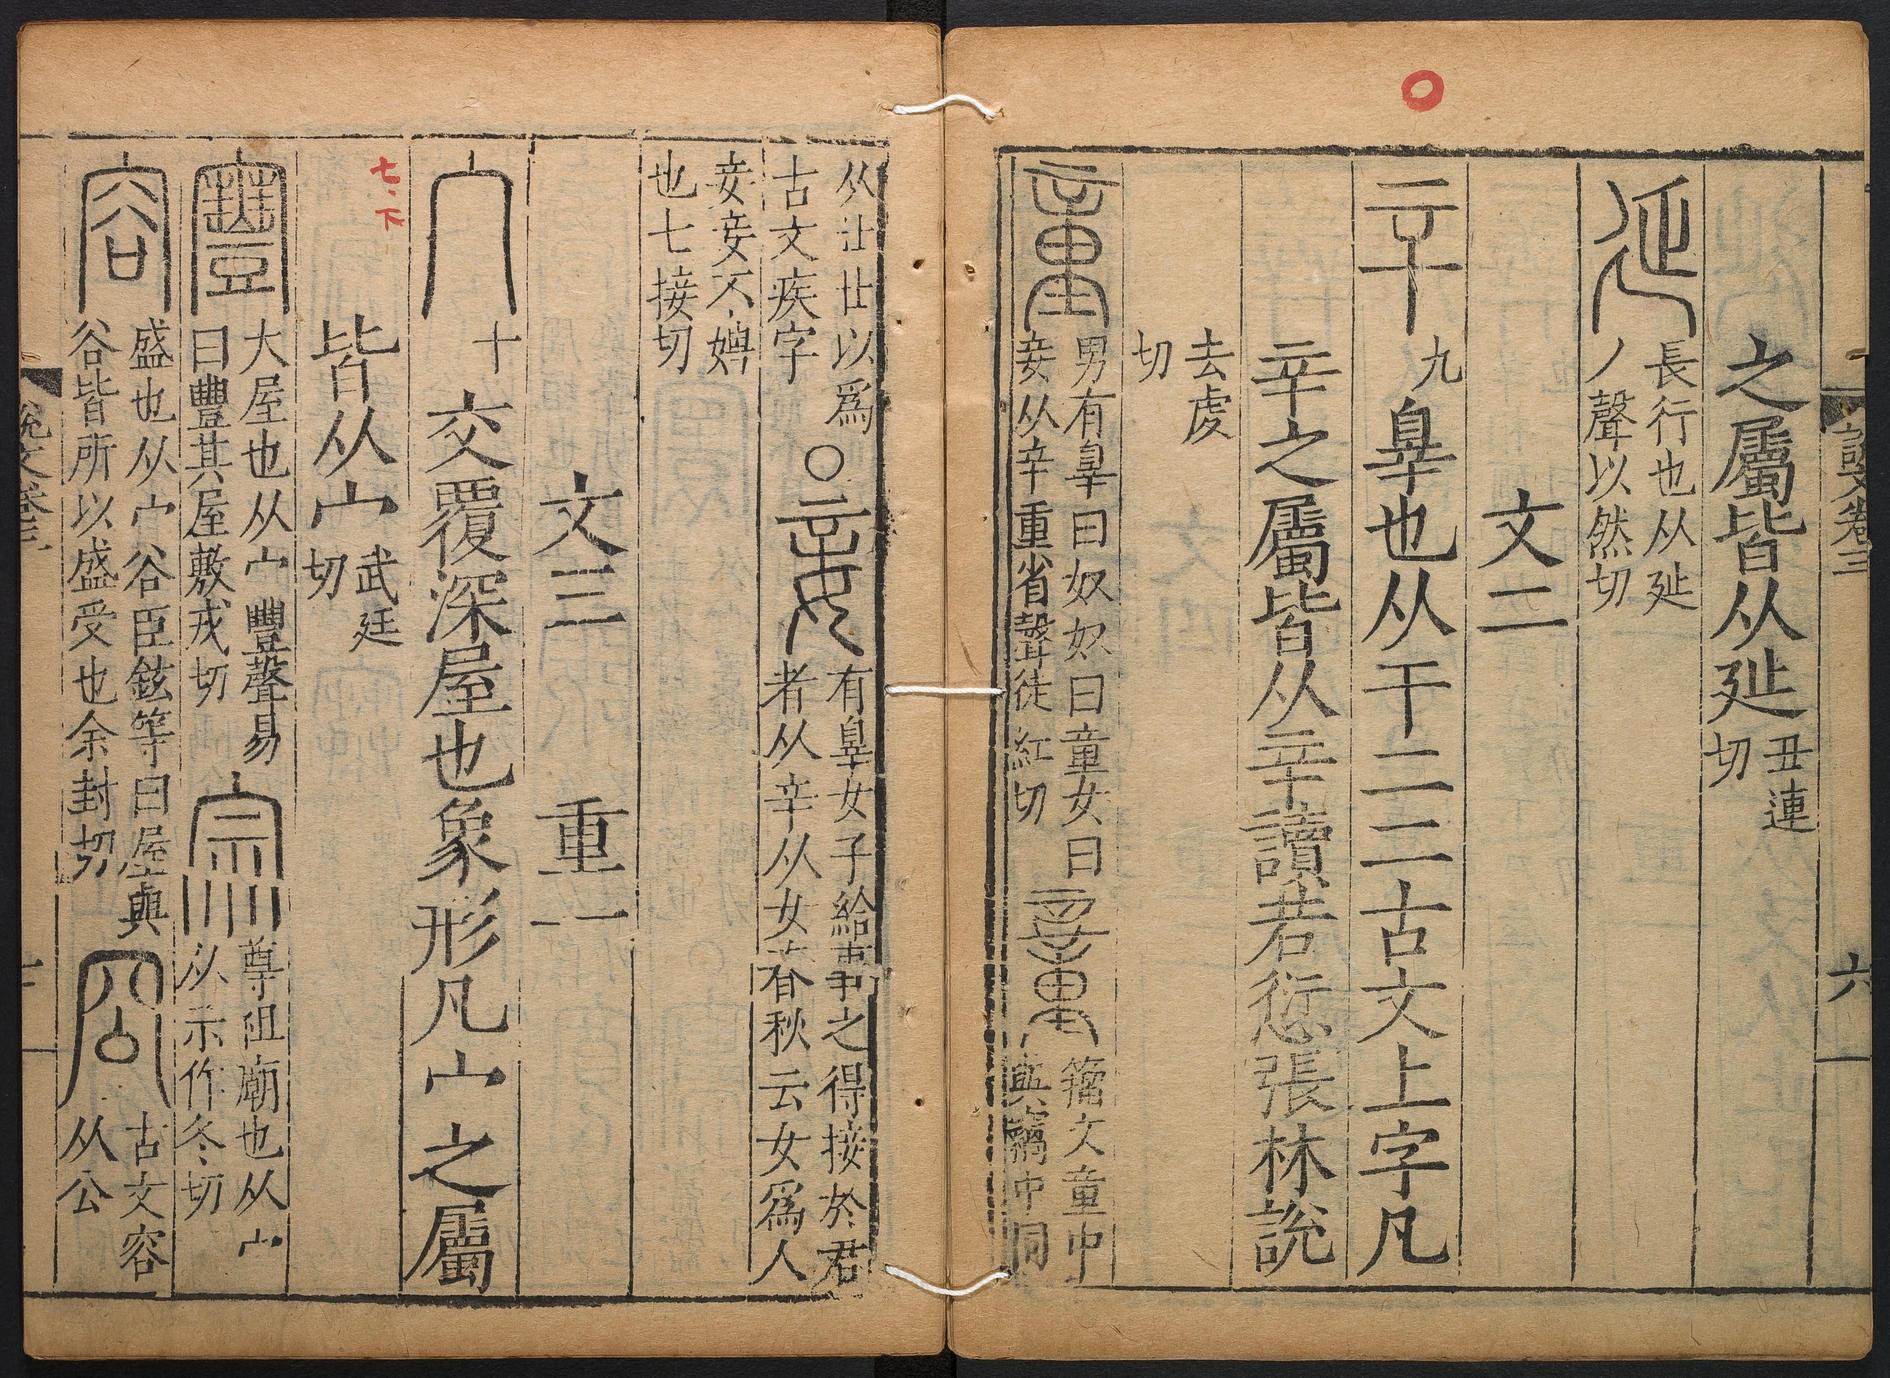 之屬皆从㢟丑連
切
延長行也从㢟
丿聲以然切
文二
䇂九辠也从干二二古文上字凡
䇂之屬皆从䇂讀若愆張林說
去虔
切
童男有辠曰奴奴曰童女曰
妾从䇂重省聲徒紅切
𥫍籀文童中
與竊中同
从廿廿以爲
古文疾字
○妾有辠女子給事之得接於君
者从䇂从女春秋云女爲人
妾妾不娉
也七接切
文三 重一
宀十交覆深屋也象形凡宀之屬
七、下
皆从宀武延
切
寷大屋也从宀豐聲易
曰豐其屋敷戎切
宗尊祖廟也从宀
从示作冬切
容盛也从宀谷臣鉉等曰屋與
谷皆所以盛受也余封切
㝐古文容
从公
說文卷三
六